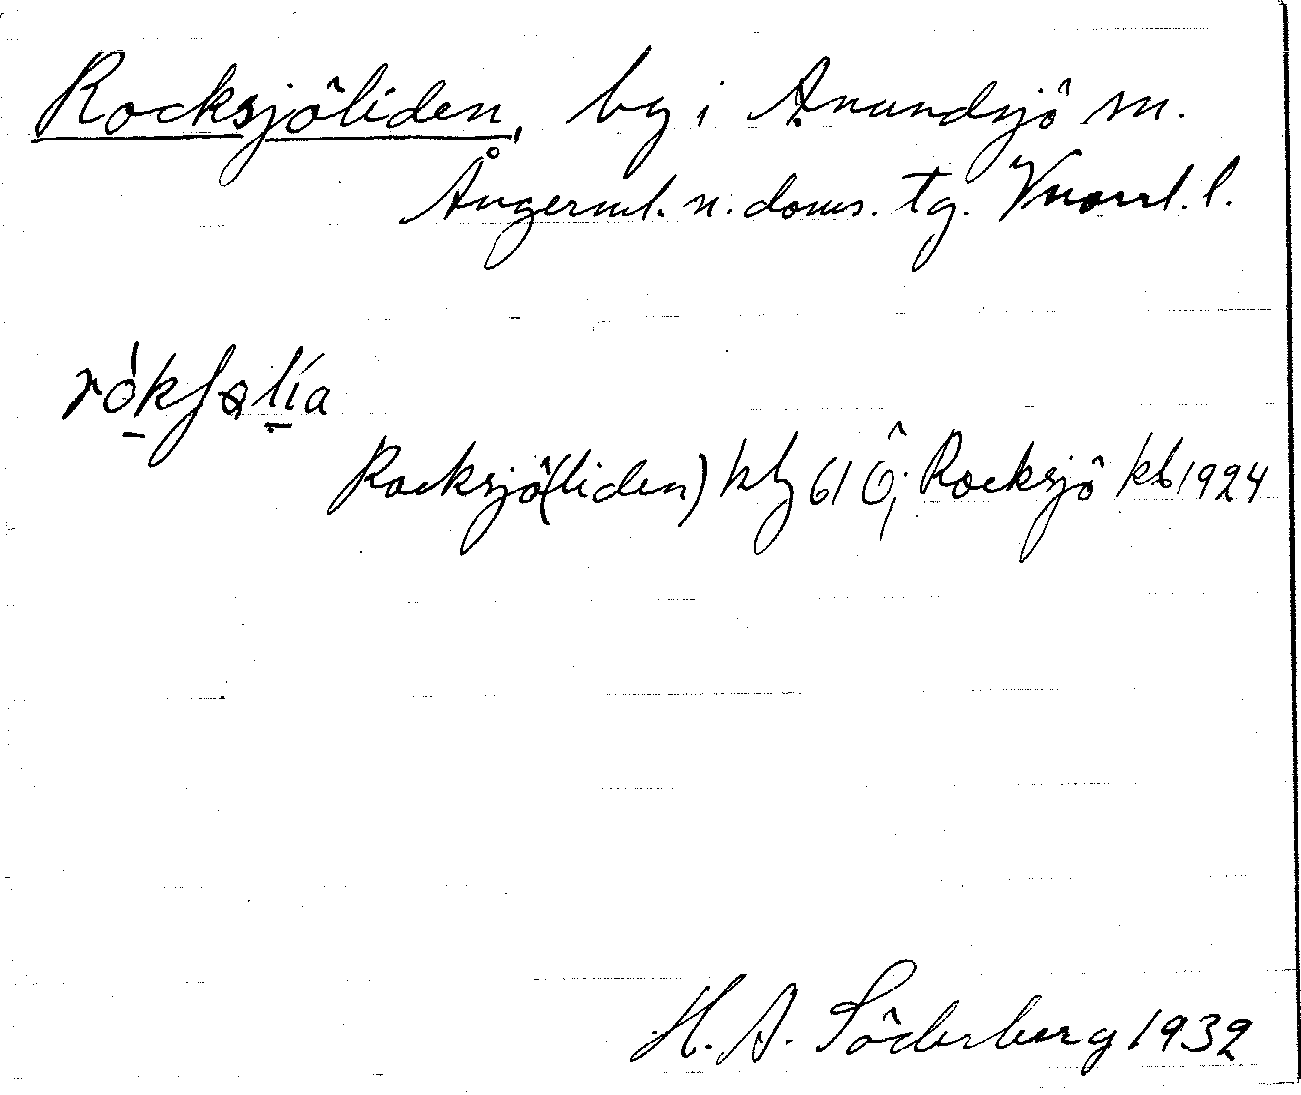 Rocksjöliden, by i Anundsjö sn.
Ångerml. n. doms. tg. Vnorrl. l.
Rocksjö(liden) kbg 61 Ö; Rocksjö kb 1924
H. A. Söderberg 1932